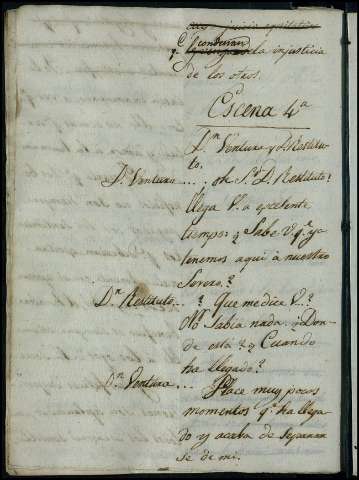 conduzcan
la injusticia
de los otros.
Escena 4ª
Dn. Ventura y D. Restitu-
to.
Dn. Ventura.... oh Sr. D. Restituto?
llega V. a ecselente
tiempo: ¿ Sabe V. qe. ya
tenemos aqui à nuestro
Severo?
Dn. Restituto... ? Que me dice V.?
No Sabia nada. ¿Don-
de està? y Cuando
ha llegado?
Dn. Ventura.... Hace muy pocos
momentos qe. ha llega-
do y acaba de Separar-
se de mi.